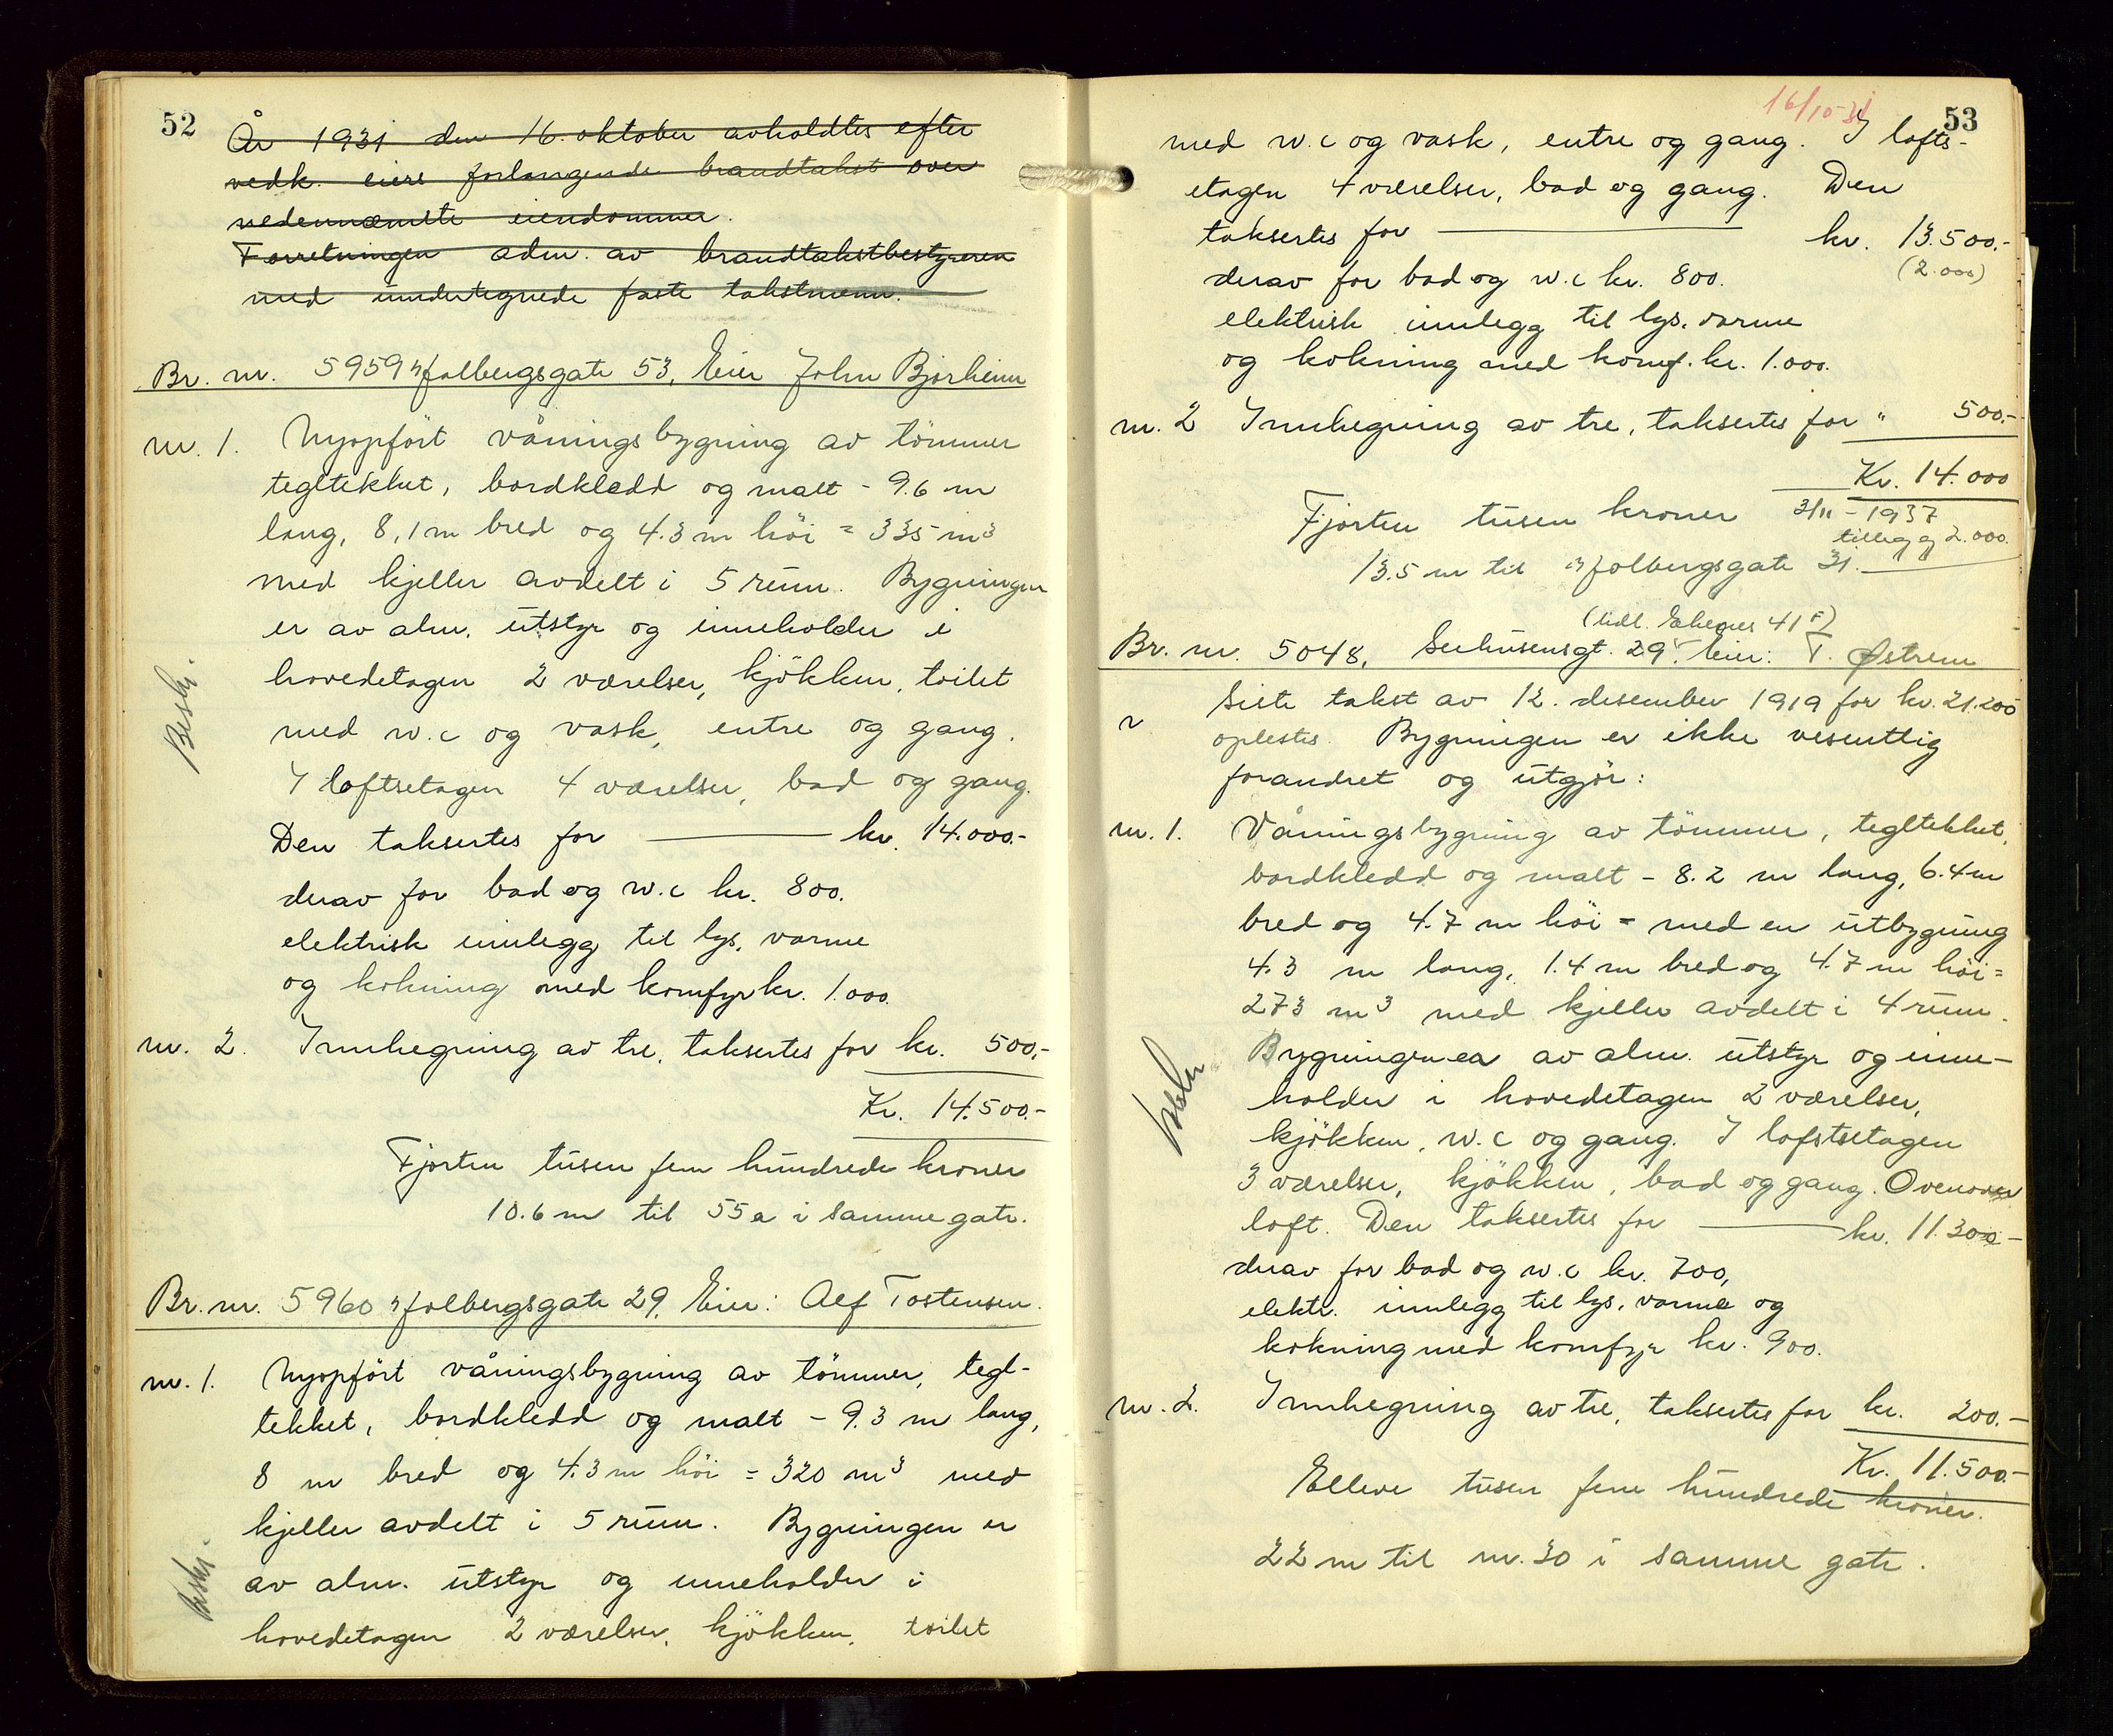 52
År 1931 den 16. oktober avholdtes efter
vedk. eiers forlangende brandtakst over
nedennæmnte eiendommer.
Forretningen adm. av brandtakstbestyreren
med undertegnede faste takstmenn.
Br. nr. 5959 Holbergsgate 53, Eier John Bjorheim
nr. 1. Nyopført våningsbygning av tömmer
tegltekket, bordkledd og malt - 9.6 m
lang, 8,1 m bred og 4.3 m höi = 335 m³
med kjeller avdelt i 5 rum. Bygningen
er av alm. utstyr og inneholder i
hovedetagen 2 værelser, kjökken, toilet
Beskr.
med w.c og vask, entre og gang.
I loftsetagen 4 værelser, bad og gang.
Den taksertes for kr. 14.000.-
derav for bad og w.c kr. 800.
elektrisk innlegg til lys, varme
og kokning med komfyr kr. 1.000.
nr. 2. Innhegning av tre, taksertes for kr. 500,-
Kr. 14.500.-
Fjorten tusen fem hundrede kroner
10.6 m til 55a i samme gate.
Br. nr. 5960 Holbergsgate 29. Eier: Alf Tostensen.
nr. 1. Nyopfört våningsbygning av tömmer, tegl-
tekket, bordkledd og malt - 9.3 m lang,
8 m bred og 4.3 m höi = 320 m³ med
kjeller avdelt i 5 rum. Bygningen er
Beskr.
av alm. utstyr og inneholder i
hovedetagen 2 værelser, kjökken, toilet
16/10-31
53
med w.c og vask, entre og gang. I lofts-
etagen 4 værelser, bad og gang. Den
taksertes for kr. 13.500.-
(2.000)
derav for bad og w.c kr. 800.
elektrisk innlegg til lys, varme
og kokning med komf. kr. 1.000.
nr. 2 Innhegning av tre, taksertes for " 500.-
Kr. 14.000
Fjorten tusen kroner 3/11-1937
tillegg 2.000.
13.5 m til Holbergsgate 31.
(tidl. 41)
Br. nr. 5048, Seehusensgt. 29, Eier: T. Østrem
Siste takst av 12. desember 1919 for kr. 21.200
oplestes. Bygningen er ikke vesentlig
forandret og utgjör:
nr. 1. Våningsbygning av tömmer, tegltekket,
bordkledd og malt - 8.2 m lang, 6.4 m
bred og 4.7 m höi = med en utbygning
4.3 m lang, 1.4 m bred og 4.7 m höi =
273 m³ med kjeller avdelt i 4 rum.
Beskr.
Bygningen er av alm. utstyr og inne-
holder i hovedetagen 2 værelser,
kjökken, w.c og gang. I loftsetagen
3 værelser, kjökken, bad og gang. Ovenover
loft. Den taksertes for kr. 11.300-
derav for bad og w.c kr. 700,
elektr. innlegg til lys, varme og
kokning med komfyr kr. 900.
nr. 2. Innhegning av tre, taksertes for kr. 200.-
Kr. 11.500.-
Elleve tusen fem hundrede kroner.
22 m til nr. 30 i samme gate.